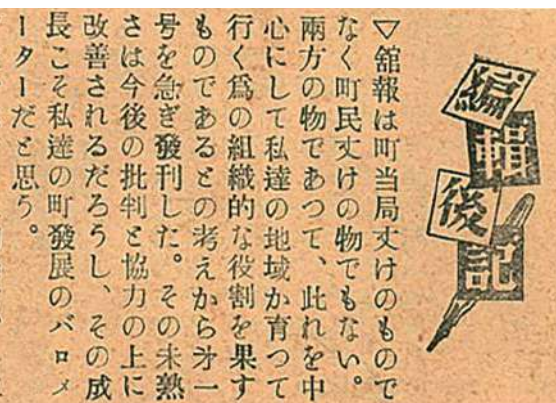 編輯後記
▽舘報は町当局丈けのもので
なく町民丈けの物でもない。
兩方の物であつて、此れを中
心にして私達の地域か育つて
行く爲の組織的な役割を果す
ものであるとの考えから㐧一
号を急ぎ發刊した。その未熟
さは今後の批判と協力の上に
改善されるだろうし、その成
長こそ私達の町發展のバロメ
ーターだと思う。